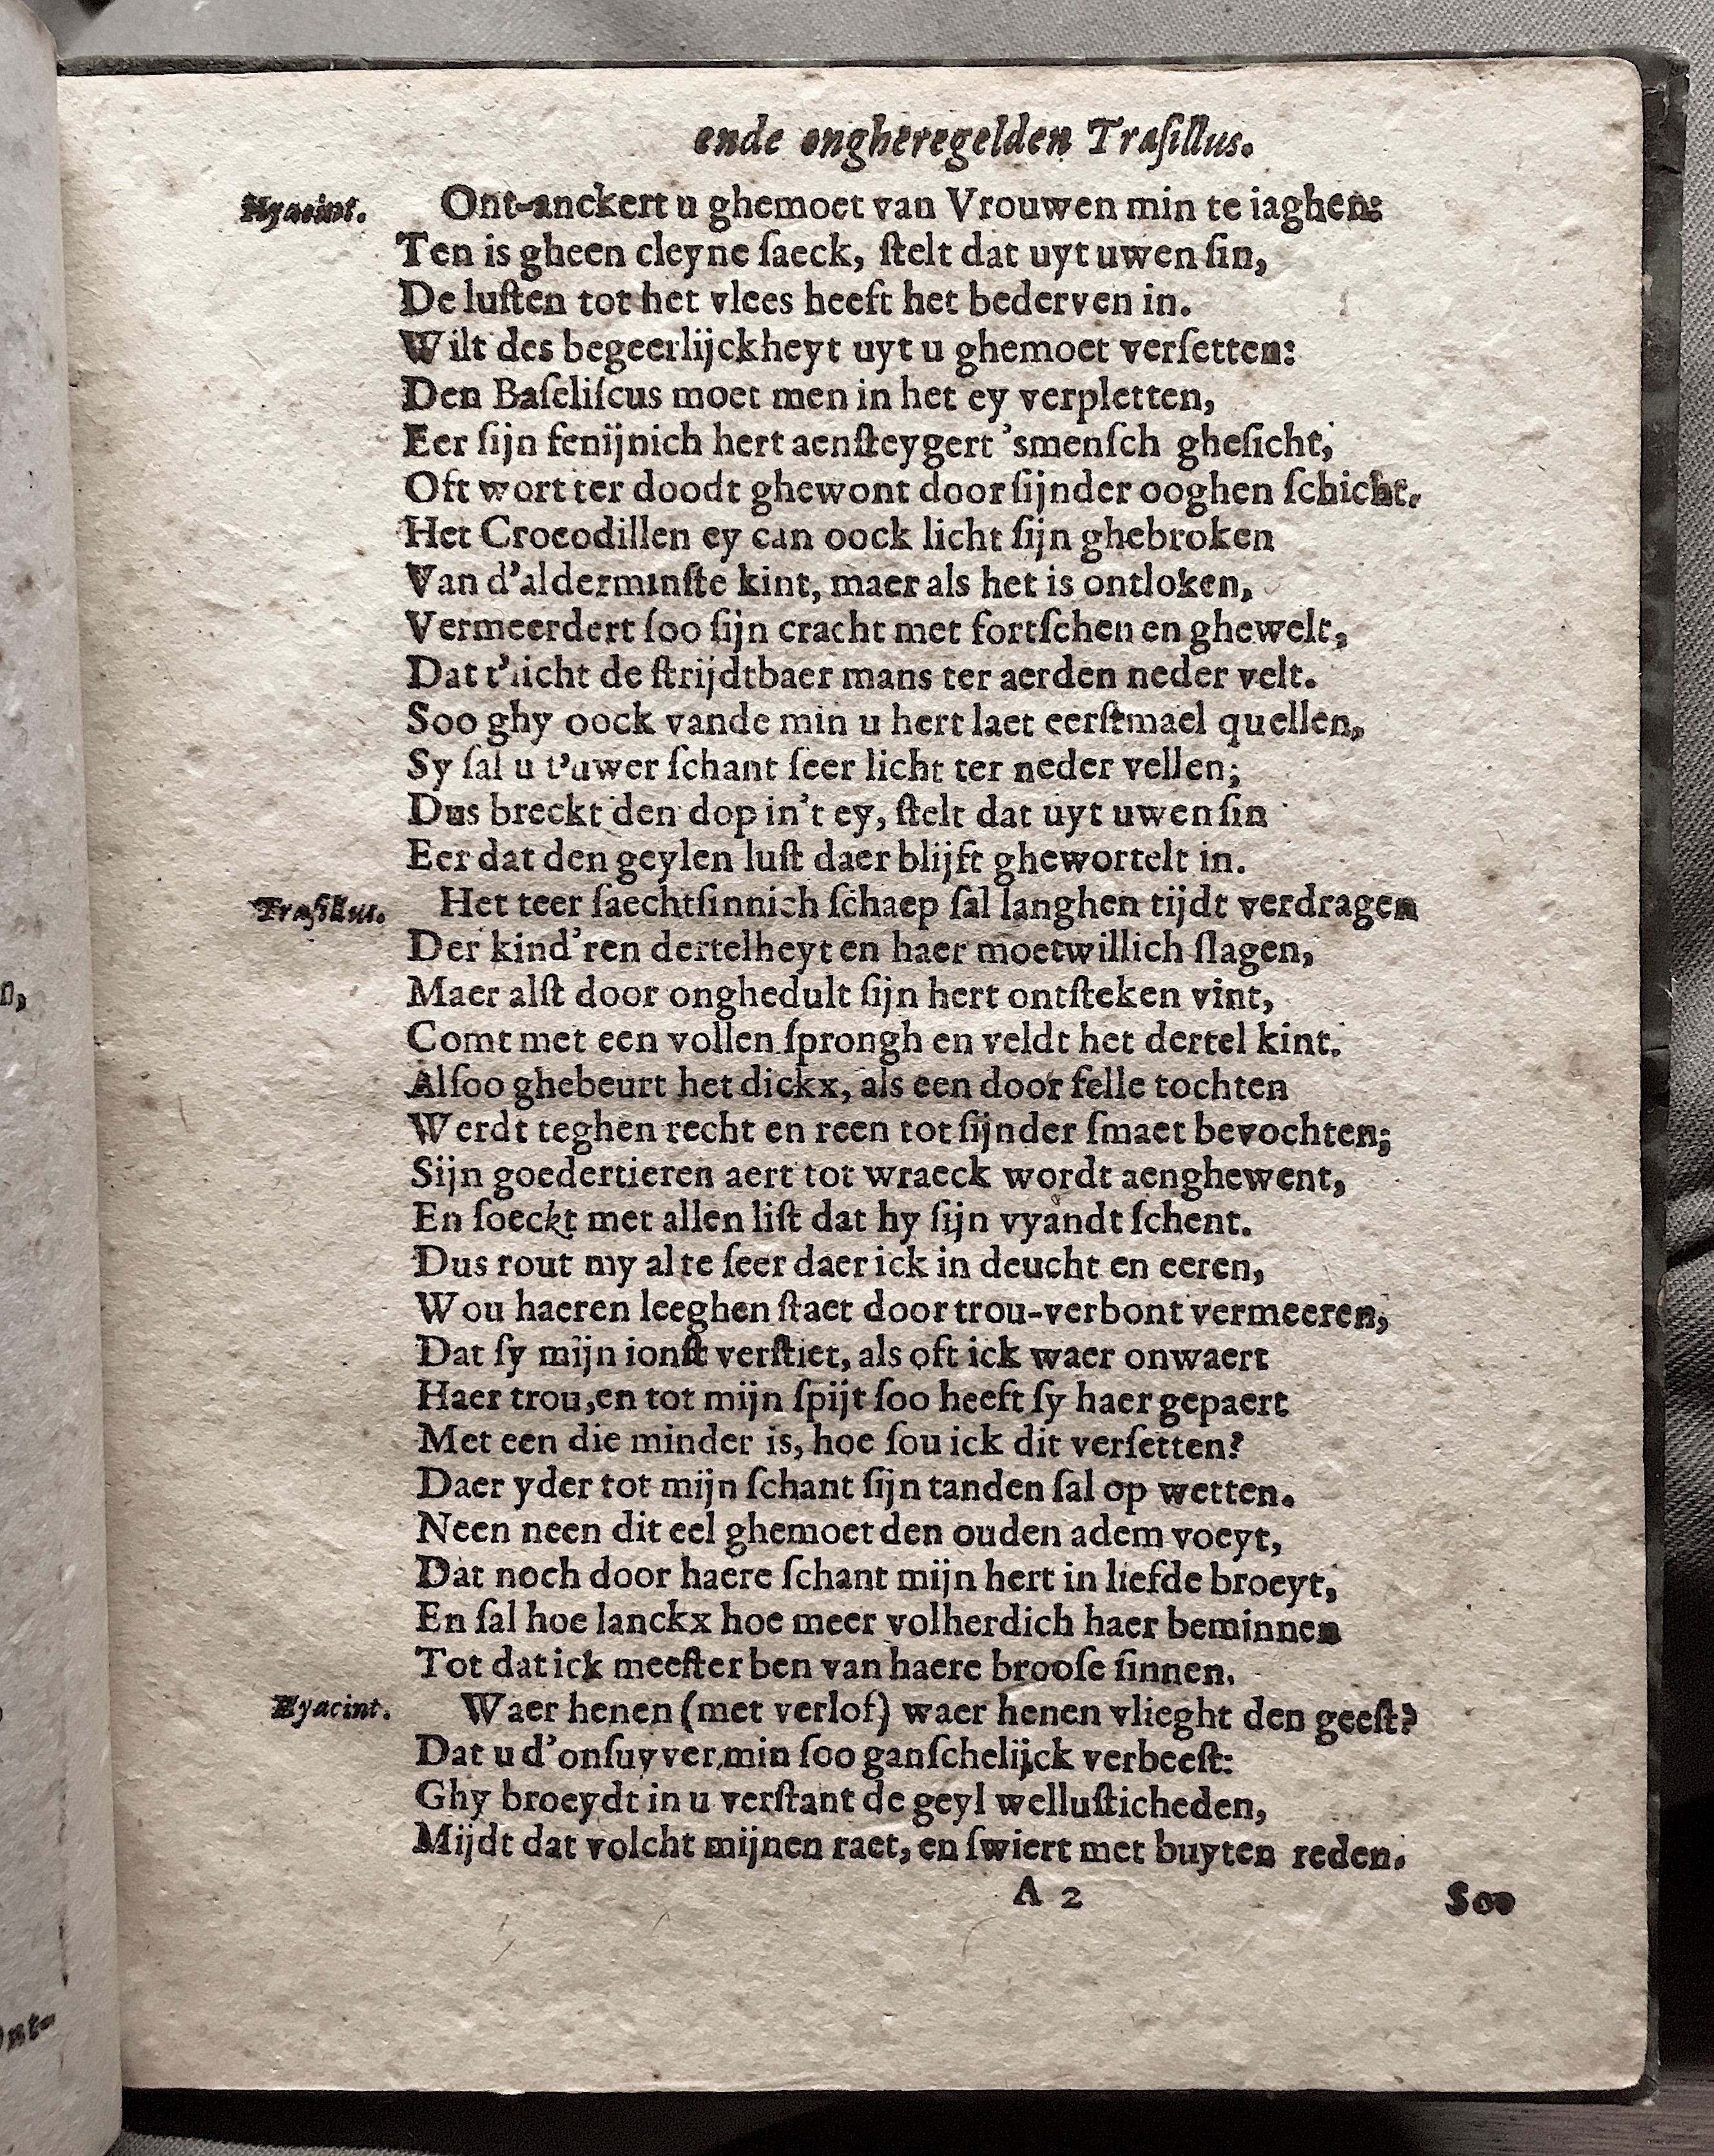 ende ongheregelden Traſillus.
Hyacint. Ont-anckert u ghemoet van Vrouwen min te iaghen:
Ten is gheen cleyne ſaeck, ſtelt dat uyt uwen ſin,
De luſten tot het vlees heeft het bederven in.
Wilt des begeerlijckheyt uyt u ghemoet verſetten:
Den Baſeliſcus moet men in het ey verpletten,
Eer ſijn fenijnich hert aenſteygert 'smenſch gheſicht,
Oft wort ter doodt ghewont door ſijnder ooghen ſchicht.
Het Crocodillen ey can oock licht ſijn ghebroken
Van d'alderminſte kint, maer als het is ontloken,
Vermeerdert ſoo ſijn cracht met fortſchen en ghewelt,
Dat t'licht de ſtrijdtbaer mans ter aerden neder velt.
Soo ghy oock vande min u hert laet eerſtmael quellen,
Sy ſal u t'uwer ſchant ſeer licht ter neder vellen;
Dus breckt den dop in't ey, ſtelt dat uyt uwen ſin
Eer dat den geylen luſt daer blijft ghewortelt in.
Traſillus. Het teer ſaechtſinnich ſchaep ſal langhen tijdt verdragen
Der kind'ren dertelheyt en haer moetwillich ſlagen,
Maer alſt door onghedult ſijn hert ontſteken vint,
Comt met een vollen ſprongh en veldt het dertel kint.
Alſoo ghebeurt het dickx, als een door felle tochten
Werdt teghen recht en reen tot ſijnder ſmaet bevochten;
Sijn goedertieren aert tot wraeck wordt aenghewent,
En ſoeckt met allen liſt dat hy ſijn vyandt ſchent.
Dus rout my al te ſeer daer ick in deucht en eeren,
Wou haeren leeghen ſtaet door trou-verbont vermeeren,
Dat ſy mijn ionſt verſtiet, als oft ick waer onwaert
Haer trou, en tot mijn ſpijt ſoo heeft ſy haer gepaert
Met een die minder is, hoe ſou ick dit verſetten?
Daer yder tot mijn ſchant ſijn tanden ſal op wetten.
Neen neen dit eel ghemoet den ouden adem voeyt,
Dat noch door haere ſchant mijn hert in liefde broeyt,
En ſal hoe lanckx hoe meer volherdich haer beminnen
Tot dat ick meeſter ben van haere brooſe ſinnen.
Hyacint. Waer henen (met verlof) waer henen vlieght den geeſt?
Dat u d'onſuyver min ſoo ganſchelijck verbeeſt:
Ghy broeydt in u verſtant de geyl welluſticheden,
Mijdt dat volcht mijnen raet, en ſwiert met buyten reden.
A 2 Soo